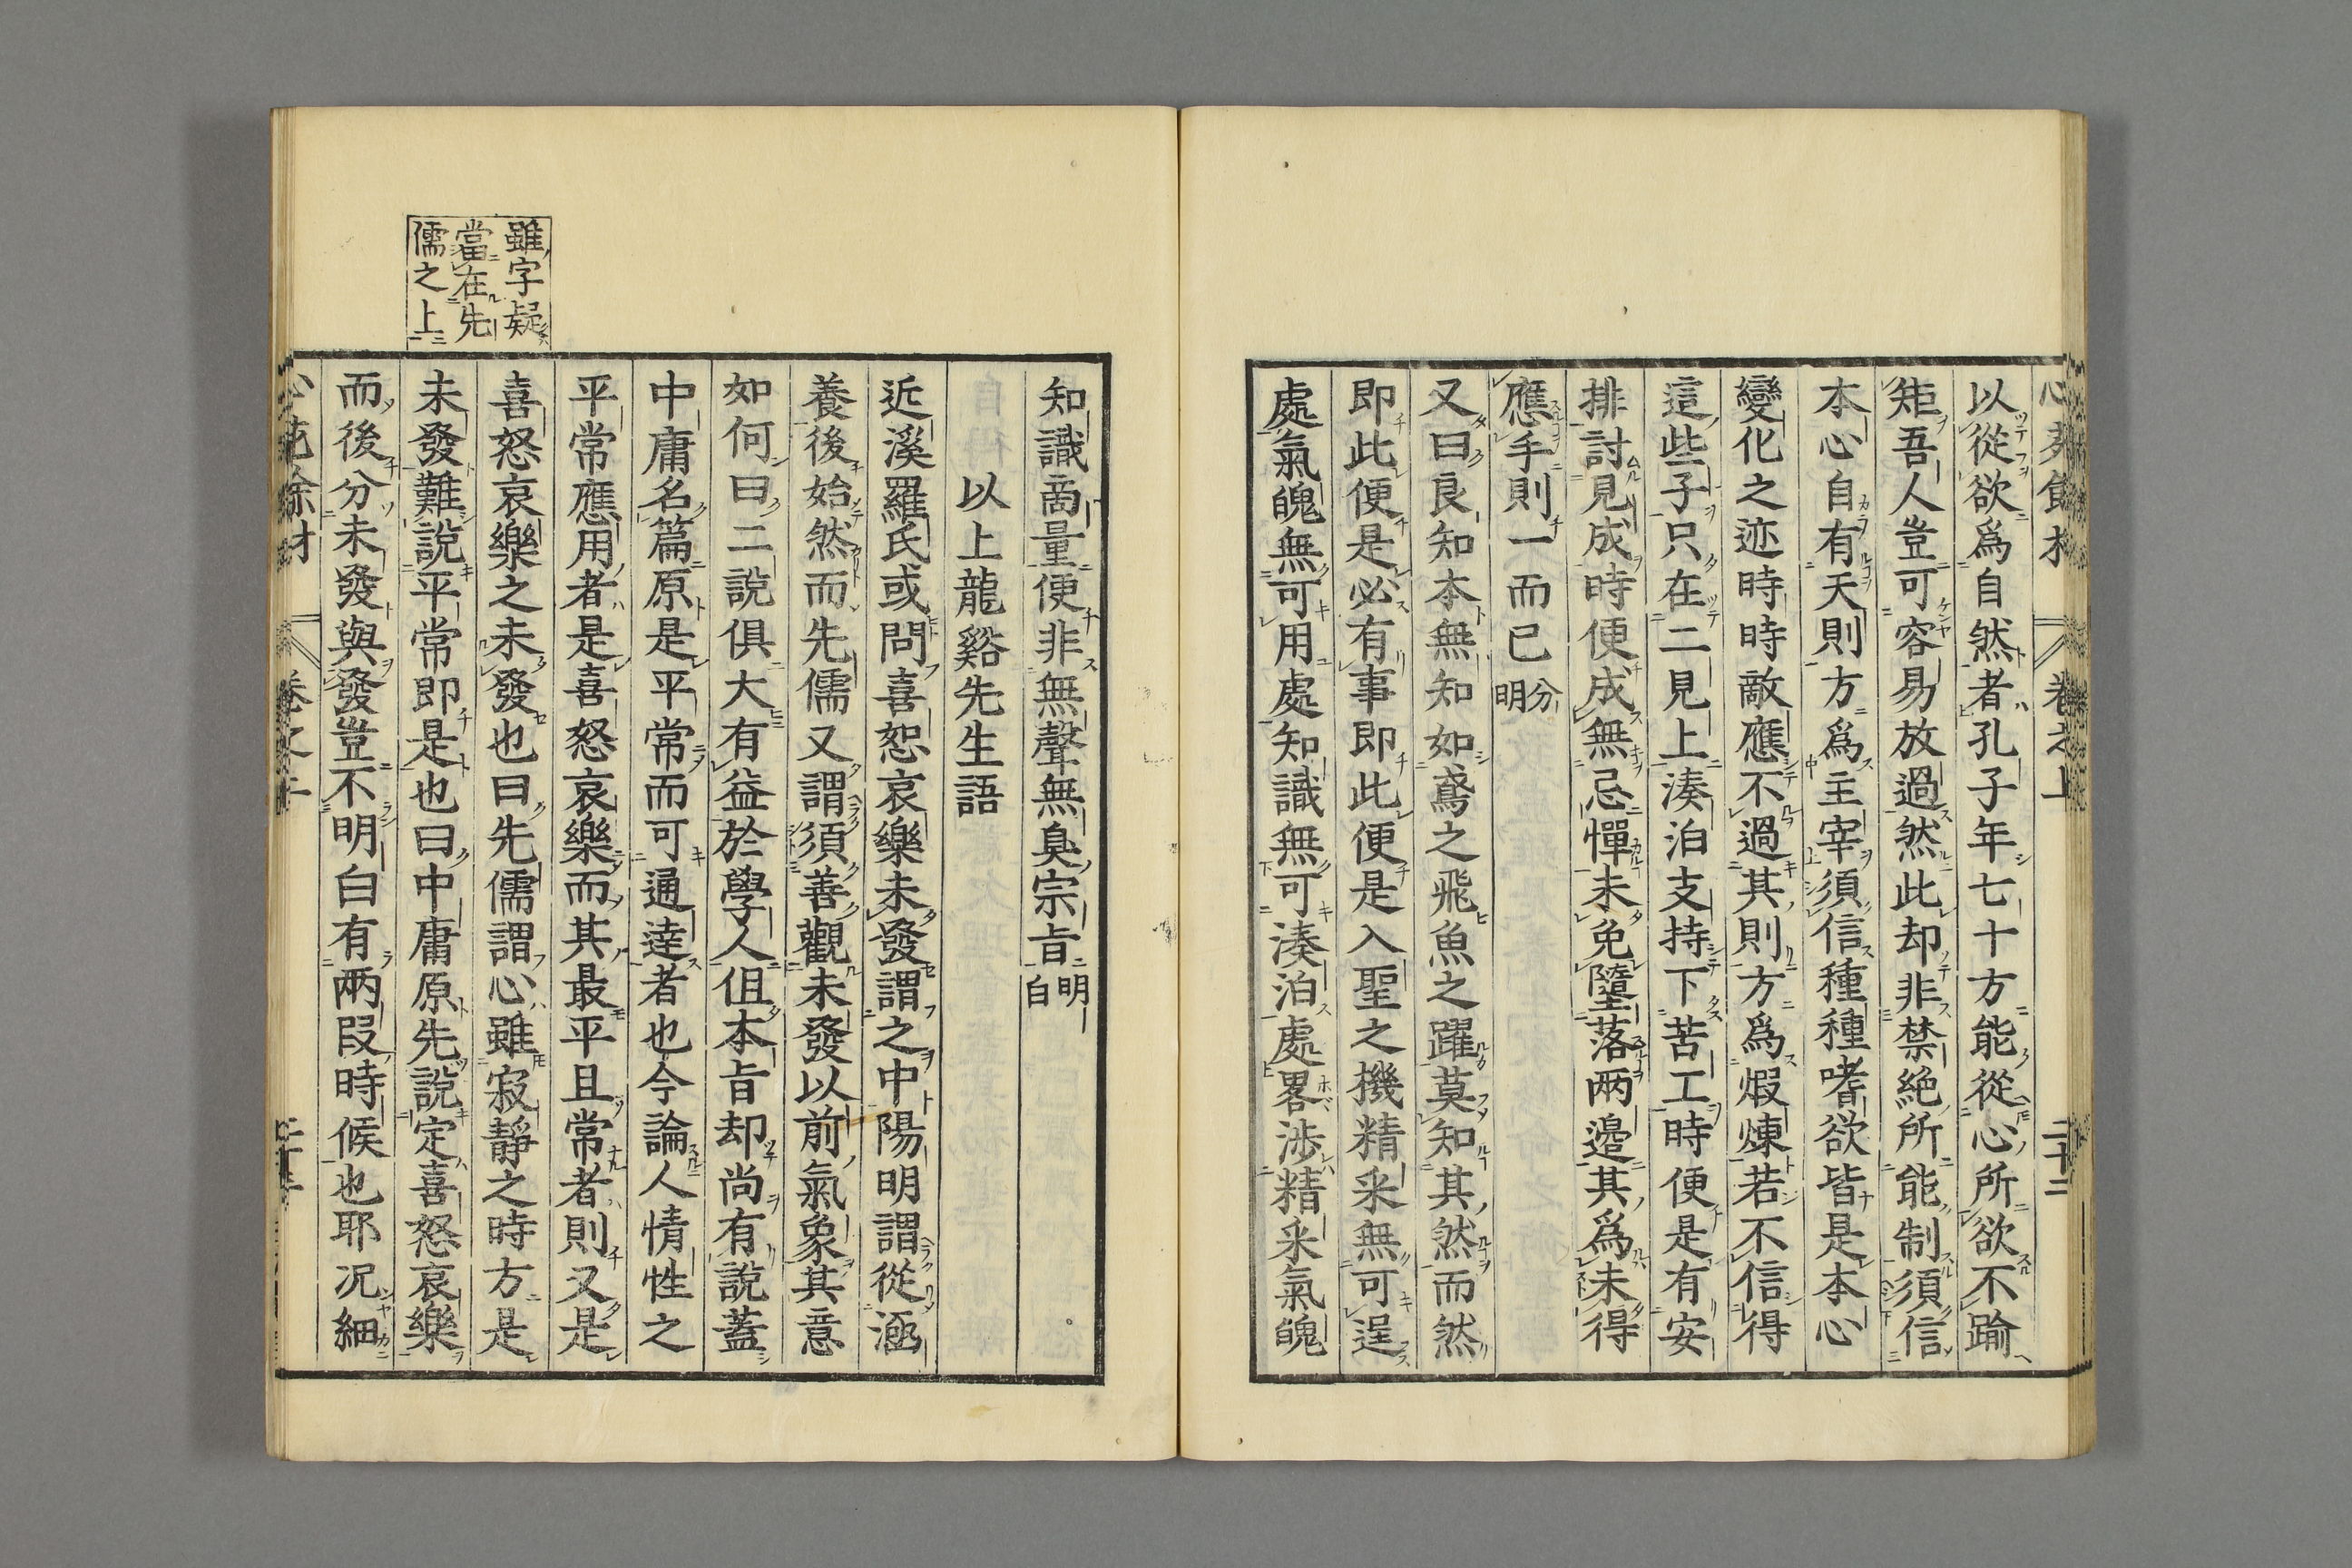 以從欲爲自然者孔子年七十方能從心所欲不踰
矩吾人豈可容易放過然此却非禁絶所能制須信
本心自有天則方爲主宰須信種種嗜欲皆是本心
變化之迹時時敵應不過其則方爲煆煉若不信得
這些子只在二見上湊泊支持下苦工時便是有安
排討見成時便成無忌憚未免墮落兩邉其爲未得
應手則一而已分明
又曰良知本無知如鳶之飛魚之躍莫知其然而然
即此便是必有事即此便是入聖之機精采無可逞
處氣魄無可用處知識無可湊泊處畧渉精采氣魄
知識啇量便非無聲無臭宗旨明白
以上龍谿先生語
近溪羅氏或問喜恕哀樂未發謂之中陽明謂從涵
養後始然而先儒又謂須善觀未發以前氣象其意
如何曰二說俱大有益於學人但本旨却尚有說蓋
中庸名篇原是平常而可通達者也今論人情性之
平常應用者是喜怒哀樂而其最平且常者則又是
喜怒哀樂之未發也曰先儒謂心雖寂靜之時方是
未發難說平常即是也曰中庸原先說定喜怒哀樂
而後分未發與發豈不明白有兩叚時候也耶况細
雖字疑
當在先
儒之上